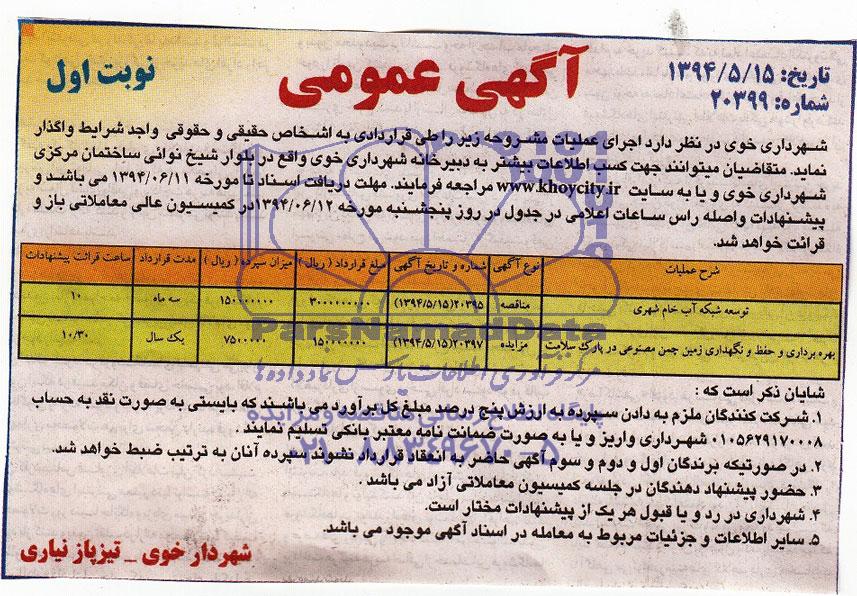 تاریخ: ۱۳۹۴/۵/۱۵
شماره: ۲۰۳۹۹
آگهی عمومی
نوبت اول
شهرداری خوی در نظر دارد اجرای عملیات مشروحه زیر را طی قراردادی به اشخاص حقیقی و حقوقی واجد شرایط واگذار
نماید. متقاضیان میتوانند جهت کسب اطلاعات بیشتر به دبیرخانه شهرداری خوی واقع در بلوار شیخ نوائی ساختمان مرکزی
شهرداری خوی و یا به سایت www.khoycity.ir مراجعه فرمایند. مهلت دریافت اسناد تا مورخه ۱۳۹۴/۰۶/۱۱ می باشد و
پیشنهادات واصله راس ساعات اعلامی در جدول در روز پنجشنبه مورخه ۱۳۹۴/۰۶/۱۲در کمیسیون عالی معاملاتی باز و
قرائت خواهد شد.
شرح عملیات نوع آگهی شماره و تاریخ آگهی مبلغ قرارداد ( ریال ) میزان سپرده ( ریال ) مدت قرارداد ساعت قرائت پیشنهادات
توسعه شبکه آب خام شهری مناقصه ۲۰۳۹۵(۱۳۹۴/۵/۱۵) ۳۰۰۰۰۰۰۰۰۰ ۱۵۰۰۰۰۰۰۰ سه ماه ۱۰
بهره برداری و حفظ و نگهداری زمین چمن مصنوعی در پارک سلامت مزایده ۲۰۳۹۷(۱۳۹۴/۵/۱۵) ۱۵۰۰۰۰۰۰۰ ۷۵۰۰۰۰۰ یک سال ۱۰/۳۰
ParsNamadData
مرکز فرآوری اطلاعات پارس نماد داده ها
شایان ذکر است که :
۱. شرکت کنندگان ملزم به دادن سپرده به ارزش پنج درصد مبلغ کل برآورد می باشند که بایستی به صورت نقد به حساب
۰۱۰۵۶۲۹۱۷۰۰۰۸ شهرداری واریز و یا به صورت ضمانت نامه معتبر بانکی تسلیم نمایند .
۲. در صورتیکه برندگان اول و دوم و سوم آگهی حاضر به انعقاد قرارداد نشوند سپرده آنان به ترتیب ضبط خواهد شد.
۳. حضور پیشنهاد دهندگان در جلسه کمیسیون معاملاتی آزاد می باشد .
۴. شهرداری در رد و یا قبول هر یک از پیشنهادات مختار است.
۵. سایر اطلاعات و جزئیات مربوط به معامله در اسناد آگهی موجود می باشد.
۰۲۱-۸۸۳۴۹۶۷۰-۵
شهردار خوی _ تیزپاز نیاری